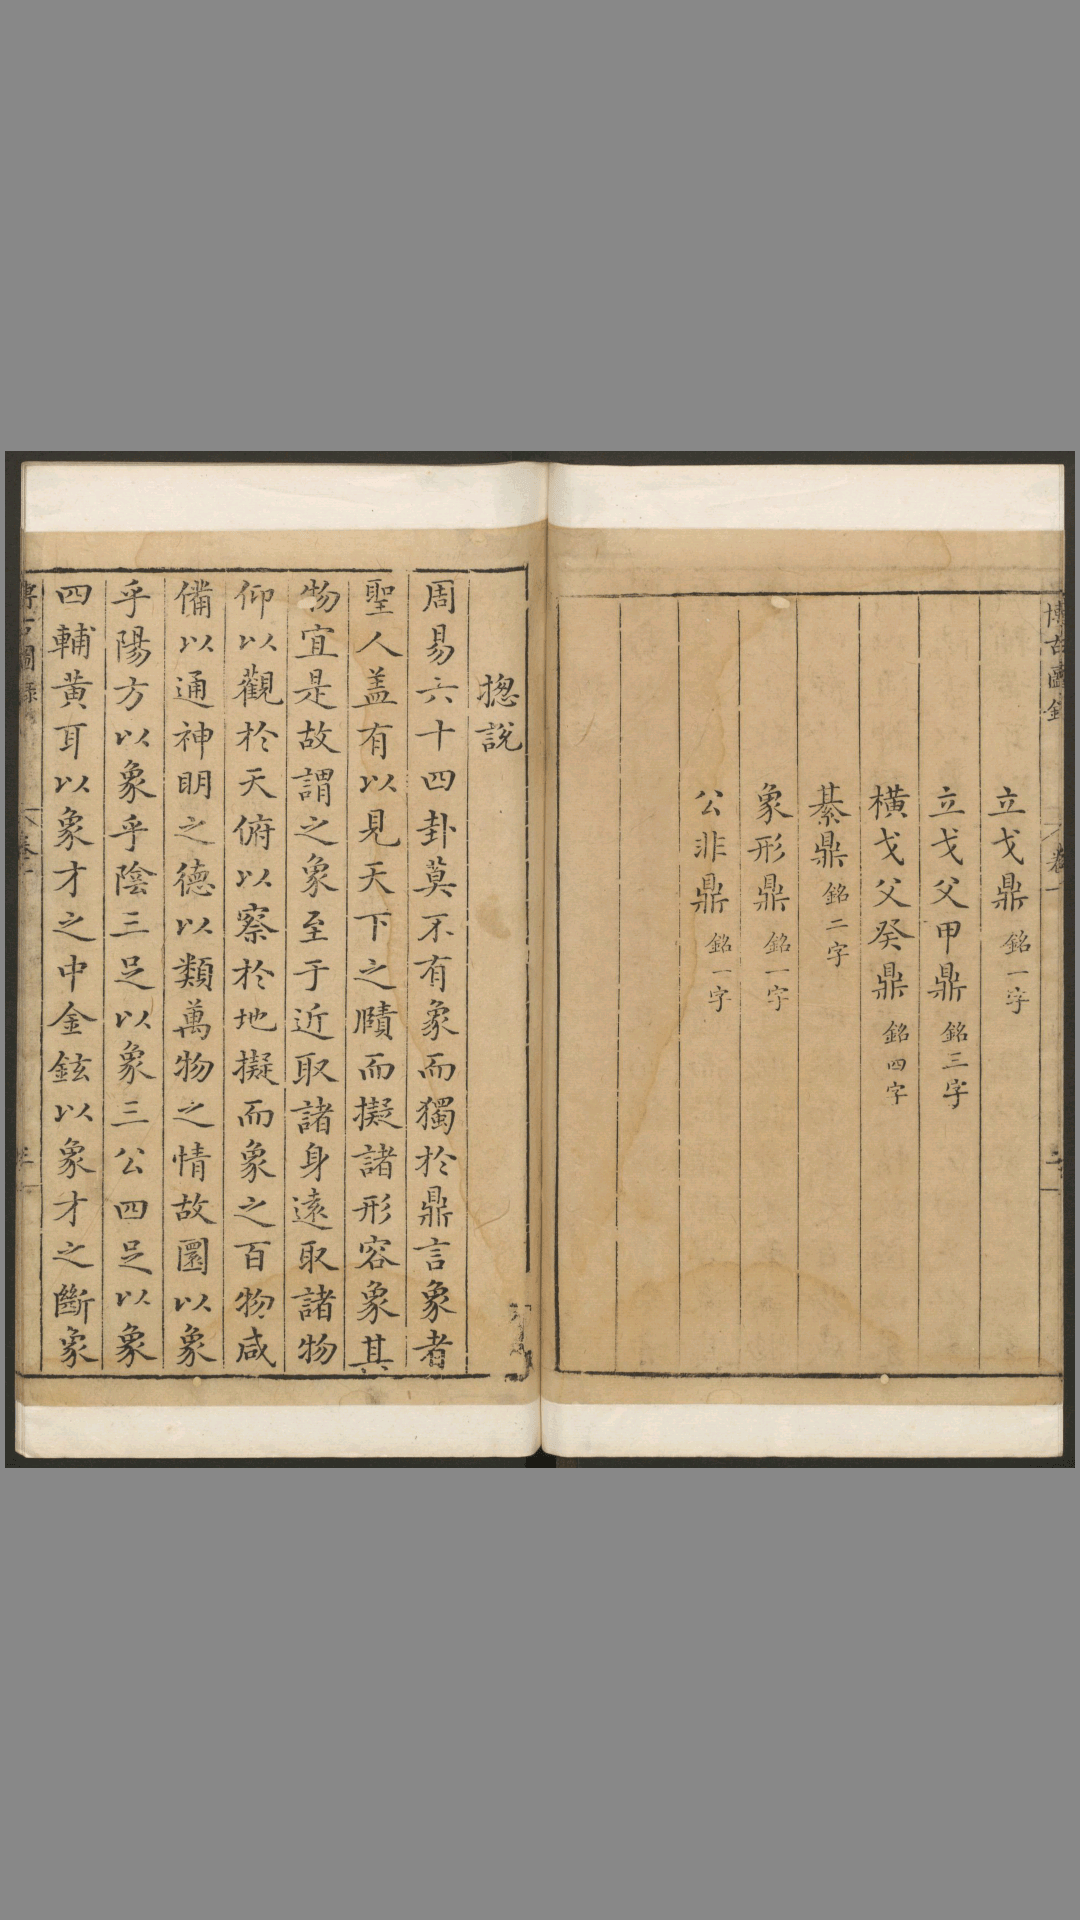 博古圖錄 卷一
立戈鼎 銘一字
立戈父甲鼎 銘三字
橫戈父癸鼎 銘四字
綦鼎 銘二字
象形鼎 銘一字
公非鼎 銘一字
揔說
周易六十四卦莫不有象而獨於鼎言象者
聖人盖有以見天下之賾而擬諸形容象其
物宜是故謂之象至于近取諸身遠取諸物
仰以觀於天俯以察於地擬而象之百物咸
備以通神明之德以類萬物之情故圜以象
乎陽方以象乎陰三足以象三公四足以象
四輔黃耳以象才之中金鉉以象才之斷象